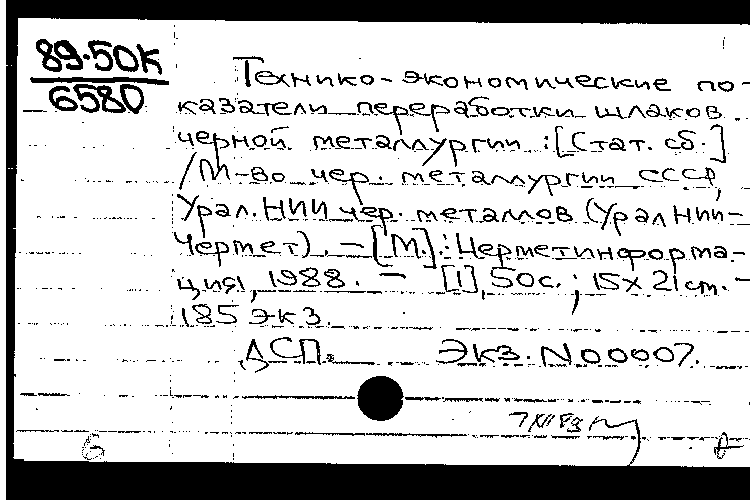 89-50К
6580
Технико-экономические по-
казатели переработки шлаков
черной металлургии : [Стат. сб.]
/М-во чер. металлургии СССР,
Урал. НИИ чер. металлов (УралНИИ-
Чермет). — [М.] : Черметинформа-
ция, 1988. — [1], 50с. ; 15х21см. —
185 экз.
ДСП. Экз. N00007.
б